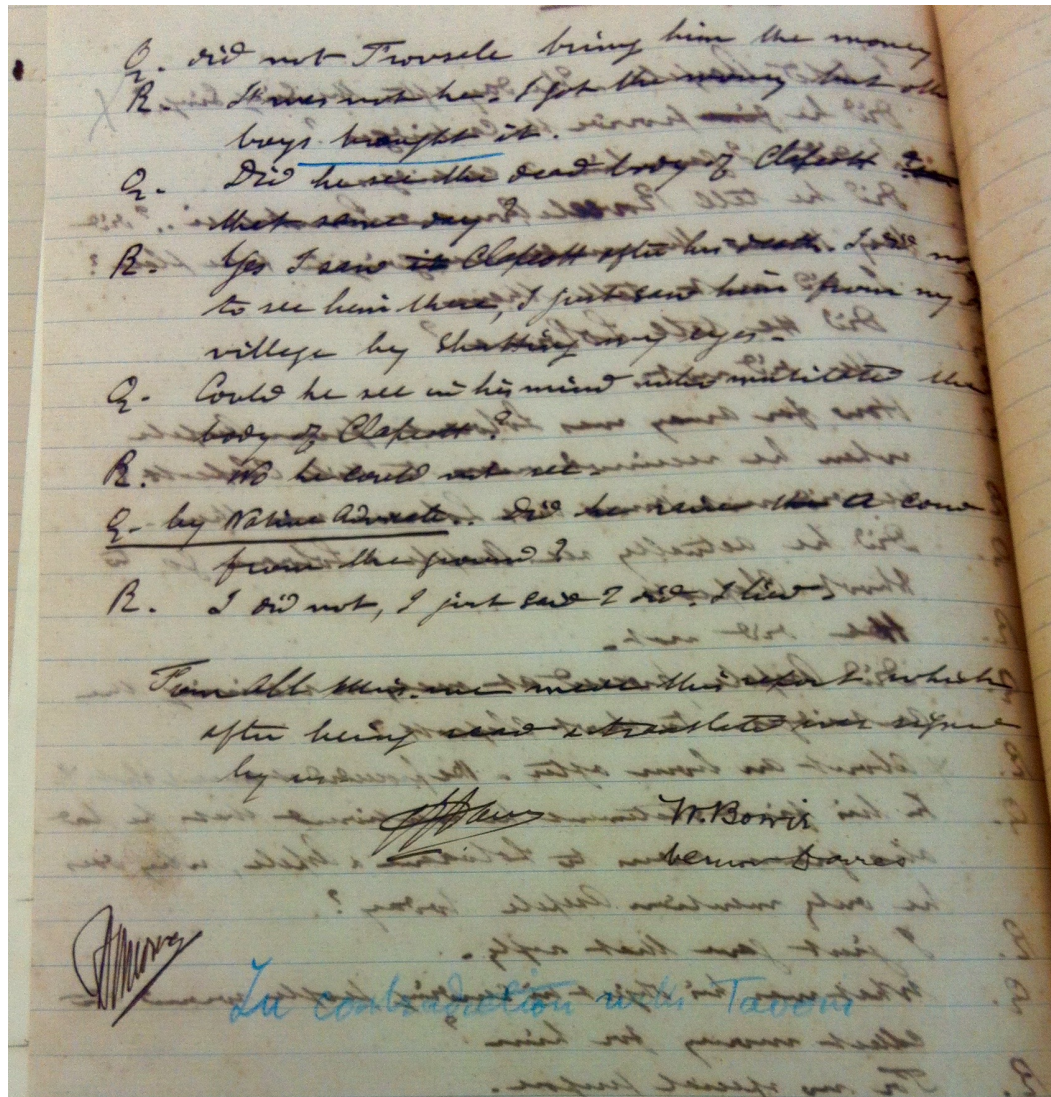 Q. did not Trousele bring him the money
R. It was not he. I got the money but othe
boys brought it.
Q. Did he see the dead body of Clapcott
that same day?
R. Yes I saw it Clapcott after his death. I did no
to see him there, I just saw him from my
village by shutting my eyes.
Q. Could he see in his mind who mutilated the
body of Clapcott?
R. No he could not see.
Q. by Native Advocate. Did he raise the A cow
from the ground?
R. I did not, I just said I did. I lied.
From all this we made this report which
after being read & translated was signe
by us
W. Bowie
In contradiction with Tavoni